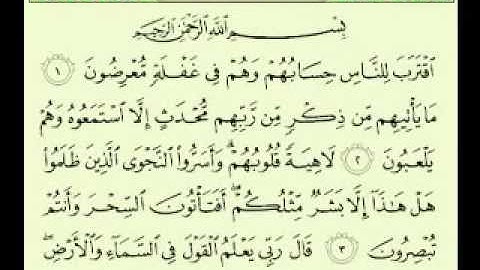 بِسْمِ ٱللَّهِ ٱلرَّحْمَـٰنِ ٱلرَّحِيمِ
ٱقْتَرَبَ لِلنَّاسِ حِسَابُهُمْ وَهُمْ فِى غَفْلَةٍ مُّعْرِضُونَ ١
مَا يَأْتِيهِم مِّن ذِكْرٍ مِّن رَّبِّهِم مُّحْدَثٍ إِلَّا ٱسْتَمَعُوهُ وَهُمْ
يَلْعَبُونَ ٢ لَاهِيَةً قُلُوبُهُمْ ۗ وَأَسَرُّوا۟ ٱلنَّجْوَى ٱلَّذِينَ ظَلَمُوا۟
هَلْ هَـٰذَآ إِلَّا بَشَرٌ مِّثْلُكُمْ ۖ أَفَتَأْتُونَ ٱلسِّحْرَ وَأَنتُمْ
تُبْصِرُونَ ٣ قَالَ رَبِّى يَعْلَمُ ٱلْقَوْلَ فِى ٱلسَّمَآءِ وَٱلْأَرْضِ ۖ